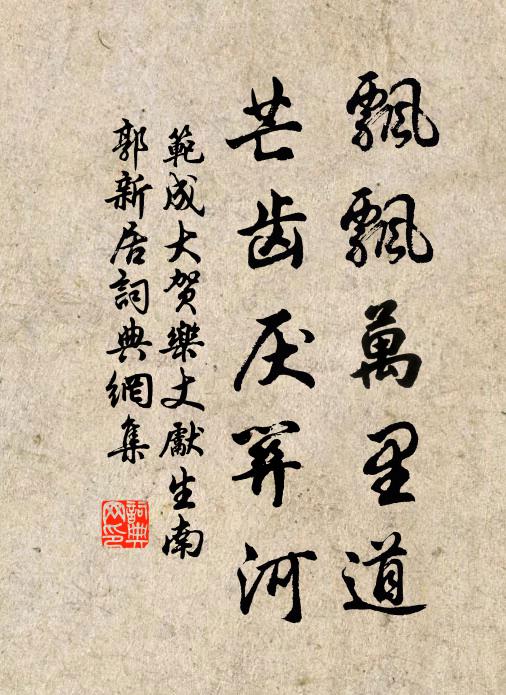 飄飄萬里道
芒齒厌關河
範成大賀樂丈獻生南
郭新居詞典網集
詞典
网印